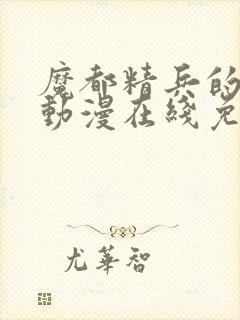 魔都精兵的
動漫在綫免
尤華智